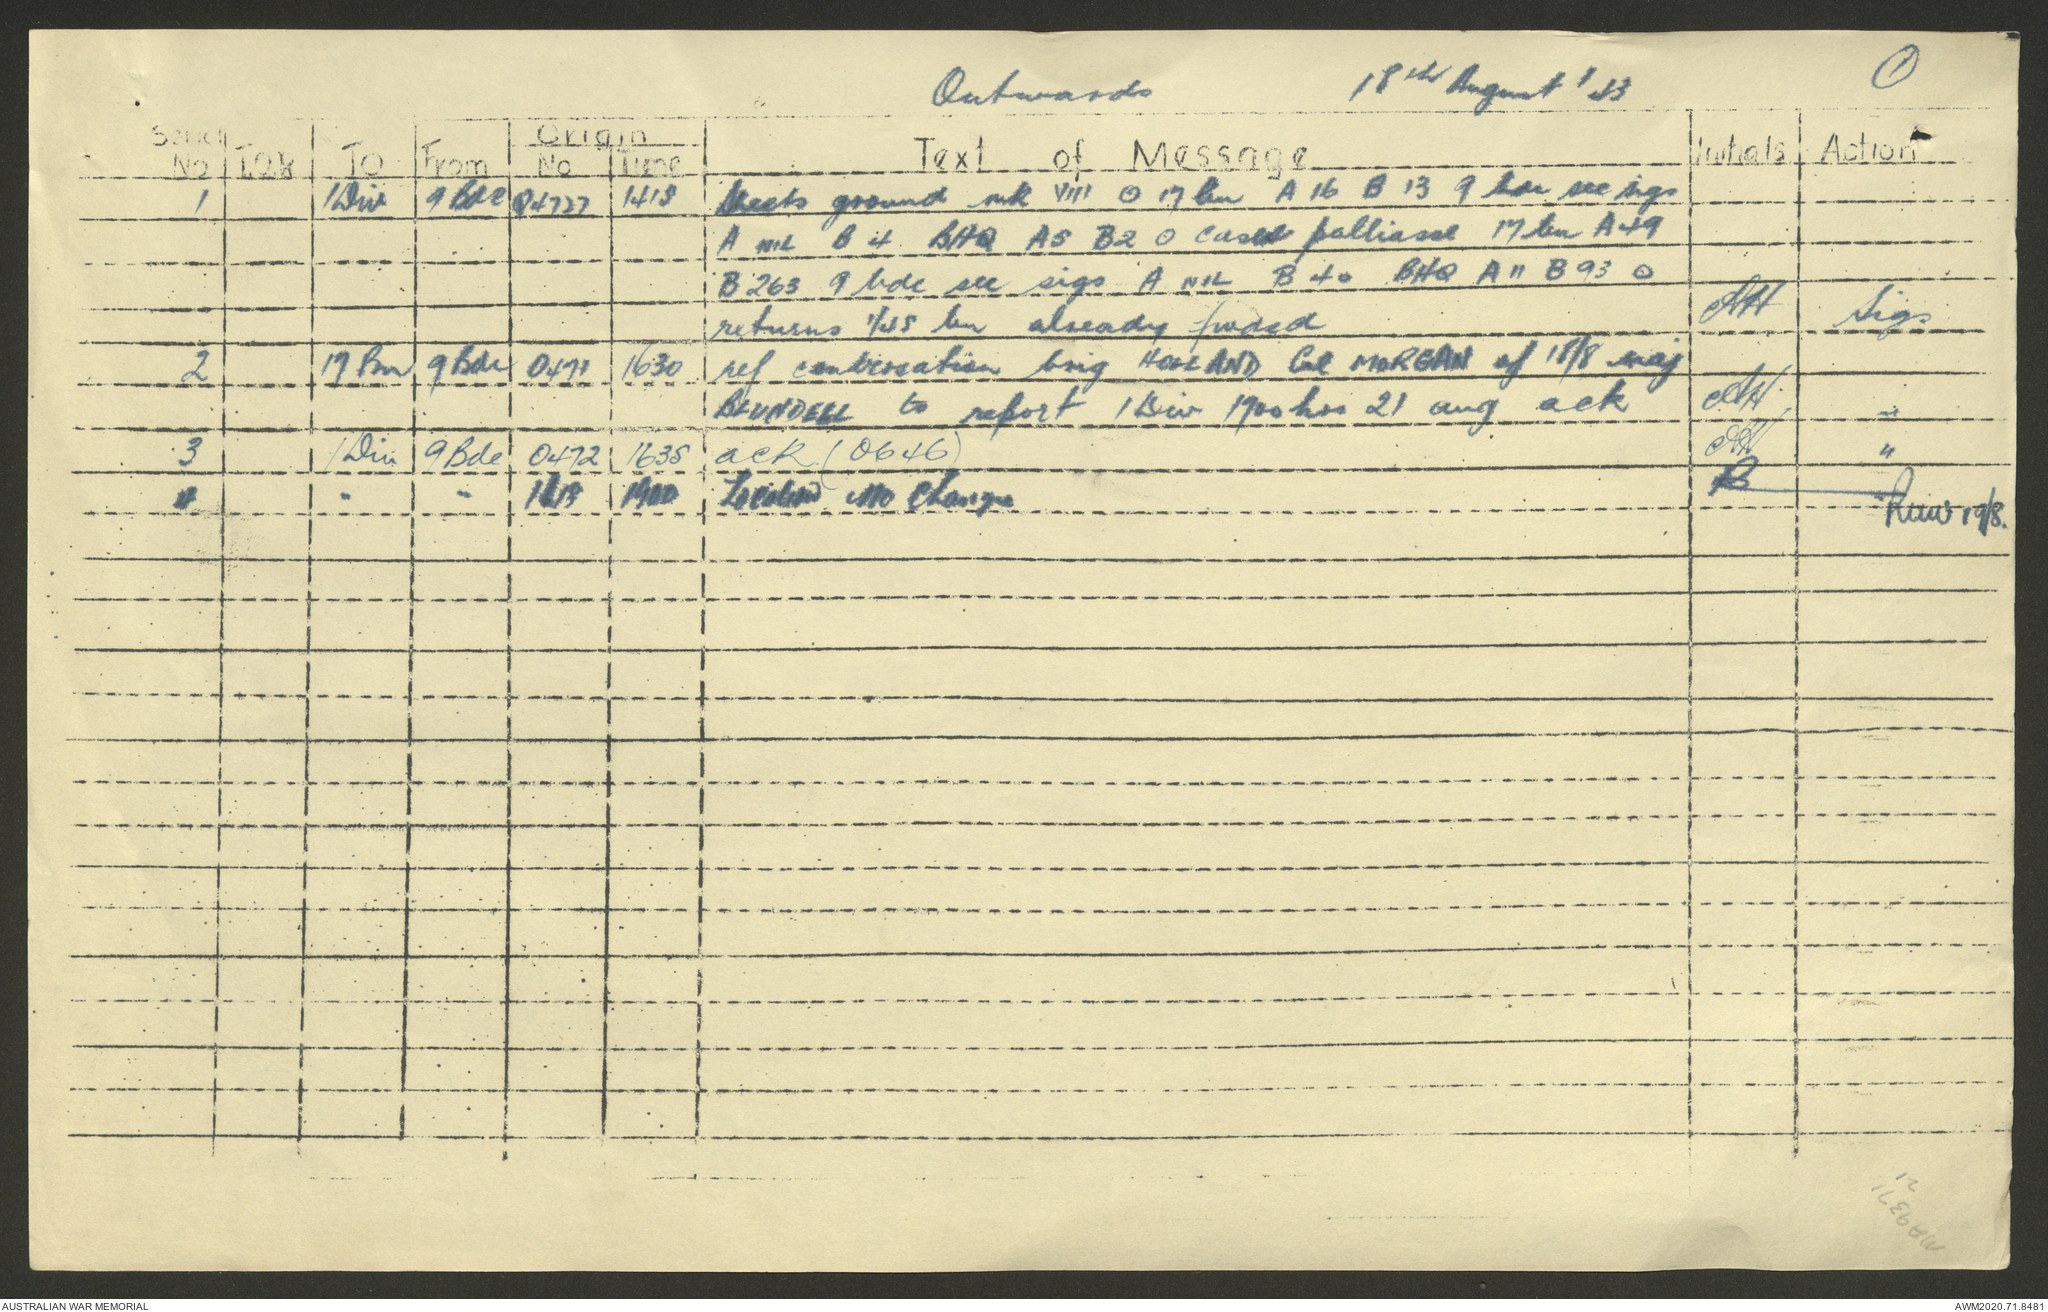 Outwards 18th August '43 1
Serial Origin
No To From No Time Text of Message Initials Action
1 1 Div 9 Bde Q4727 1415 sheets ground mk VIII O 17 bn A 16 B 13 9 bde sec sigs
A NIL B 4 BHQ A5 B2 O cases palliasse 17 bn A 49
B 263 9 bde sec sigs A NIL B 40 BHQ A 11 B 93 O
returns 1/45 bn already fwded AH Sigs
2 17 Bn 9 Bde 0471 1630 ref conversation brig HOSLAND Col MORGAN of 18/8 maj
BLUNDELL to report 1 Div 1900 hrs 21 aug ack AH "
3 1 Div 9 Bde 0472 1635 ack (0646) AH "
4 " " 1900 Location No Change
19/8.
AUSTRALIAN WAR MEMORIAL AWM2020.71.8481